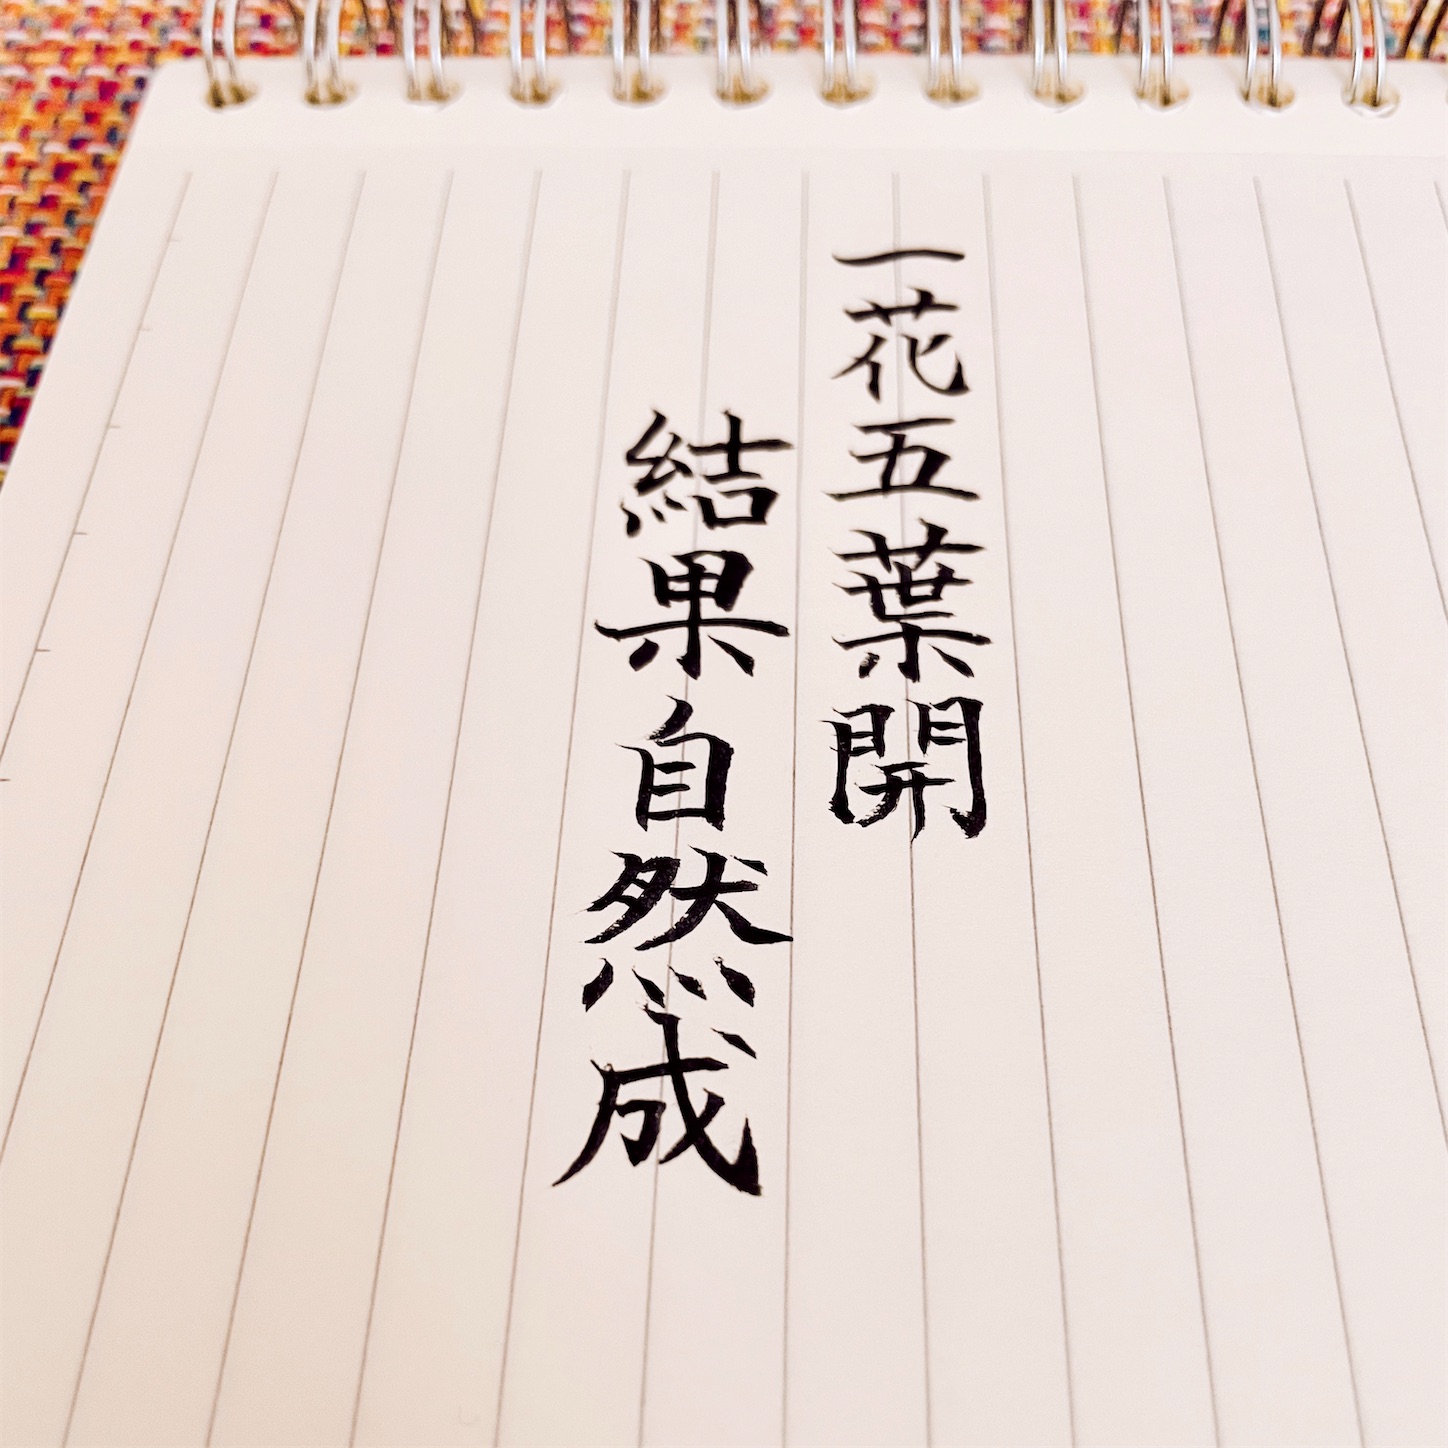 一花五葉開
結果自然成